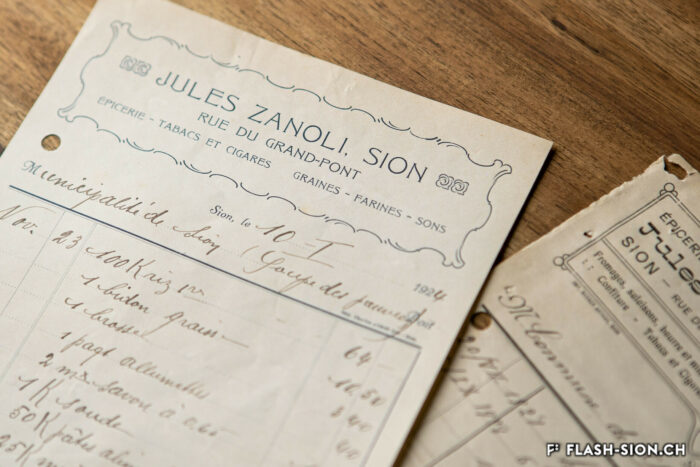 JULES ZANOLI, SION
RUE DU GRAND-PONT
EPICERIE - TABACS ET CIGARES GRAINES - FARINES - SONS
Sion, le 10 I 1924
Municipalité de Sion (Soupe des pauvres) Doit
Nov. 23 100 K riz 64 -
1 bidon 16.50
1 brosse 3.40
1 paqt allumettes 40
2 mx savon à 0.65
1 K soude
50 K pâtes alim
25 K
ÉPICERIE
Jules
SION - RUE D
Fromages, salaisons, beurre et
:: Confiture - Tabacs et Ciga
M Commune d
FLASH-SION.CH